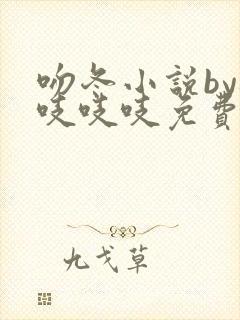 吻冬小说by
吱吱吱免费
九戈草